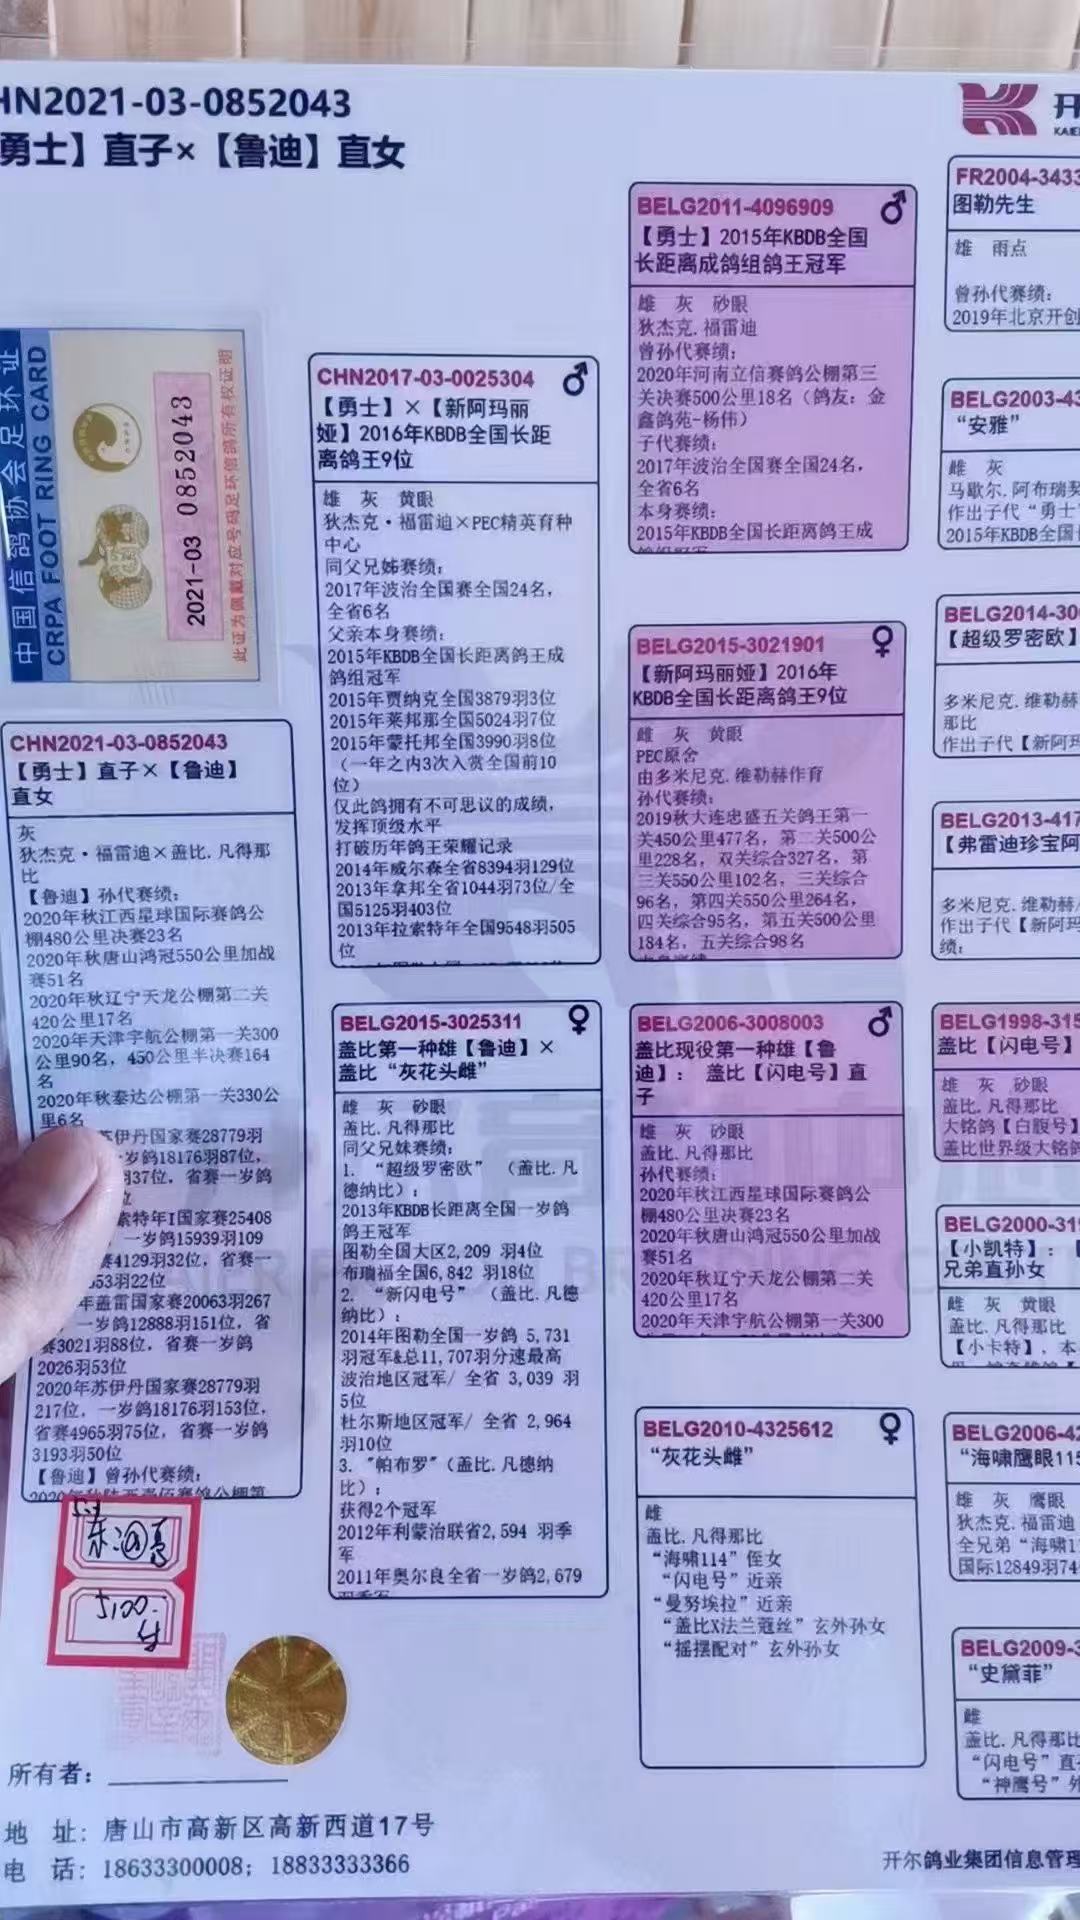 HN2021-03-0852043
勇士】直子×【鲁迪】直女
开
KAIE
中国信鸽协会足环证
CRPA FOOT RING CARD
2021-03 0852043
此证为佩戴对应号码足环信鸽所有权证明
CHN2021-03-0852043
【勇士】直子×【鲁迪】
直女
灰
狄杰克·福雷迪×盖比.凡得那
比
【鲁迪】孙代赛绩：
2020年秋江西星球国际赛鸽公
棚480公里决赛23名
2020年秋唐山鸿冠550公里加战
赛51名
2020年秋辽宁天龙公棚第二关
420公里17名
2020年天津宇航公棚第一关300
公里90名，450公里半决赛164
名
2020年秋泰达公棚第一关330公
里6名
苏伊丹国家赛28779羽
岁鸽18176羽87位，
羽37位，省赛一岁鸽
位
索特年I国家赛25408
一岁鸽15939羽109
赛4129羽32位，省赛一
553羽22位
年盖雷国家赛20063羽267
一岁鸽12888羽151位，省
赛3021羽88位，省赛一岁鸽
2026羽53位
2020年苏伊丹国家赛28779羽
217位，一岁鸽18176羽153位，
省赛4965羽75位，省赛一岁鸽
3193羽50位
【鲁迪】曾孙代赛绩：
CHN2017-03-0025304 ♂
【勇士】×【新阿玛丽
娅】2016年KBDB全国长距
离鸽王9位
雄 灰 黄眼
狄杰克·福雷迪×PEC精英育种
中心
同父兄姊赛绩：
2017年波治全国赛全国24名，
全省6名
父亲本身赛绩：
2015年KBDB全国长距离鸽王成
鸽组冠军
2015年贾纳克全国3879羽3位
2015年莱邦那全国5024羽7位
2015年蒙托邦全国3990羽8位
（一年之内3次入赏全国前10
位）
仅此鸽拥有不可思议的成绩，
发挥顶级水平
打破历年鸽王荣耀记录
2014年威尔森全省8394羽129位
2013年拿邦全省1044羽73位/全
国5125羽403位
2013年拉索特年全国9548羽505
位
BELG2015-3025311 ♀
盖比第一种雄【鲁迪】×
盖比“灰花头雌”
雌 灰 砂眼
盖比.凡得那比
同父兄妹赛绩：
1. “超级罗密欧” （盖比.凡
德纳比）：
2013年KBDB长距离全国一岁鸽
鸽王冠军
图勒全国大区2,209 羽4位
布瑞福全国6,842 羽18位
2. “新闪电号” （盖比.凡德
纳比）：
2014年图勒全国一岁鸽 5,731
羽冠军&总11,707羽分速最高
波治地区冠军/ 全省 3,039 羽
5位
杜尔斯地区冠军/ 全省 2,964
羽10位
3. "帕布罗"（盖比.凡德纳
比）：
获得2个冠军
2012年利蒙治联省2,594 羽季
军
2011年奥尔良全省一岁鸽2,679
BELG2011-4096909 ♂
【勇士】2015年KBDB全国
长距离成鸽组鸽王冠军
雄 灰 砂眼
狄杰克.福雷迪
曾孙代赛绩：
2020年河南立信赛鸽公棚第三
关决赛500公里18名（鸽友：金
鑫鸽苑-杨伟）
子代赛绩：
2017年波治全国赛全国24名，
全省6名
本身赛绩：
2015年KBDB全国长距离鸽王成
BELG2015-3021901 ♀
【新阿玛丽娅】2016年
KBDB全国长距离鸽王9位
雌 灰 黄眼
PEC原舍
由多米尼克.维勒赫作育
孙代赛绩：
2019秋大连忠盛五关鸽王第一
关450公里477名，第二关500公
里228名，双关综合327名，第
三关550公里102名，三关综合
96名，第四关550公里264名，
四关综合95名，第五关500公里
184名，五关综合98名
BELG2006-3008003 ♂
盖比现役第一种雄【鲁
迪】： 盖比【闪电号】直
子
雄 灰 砂眼
盖比.凡得那比
孙代赛绩：
2020年秋江西星球国际赛鸽公
棚480公里决赛23名
2020年秋唐山鸿冠550公里加战
赛51名
2020年秋辽宁天龙公棚第二关
420公里17名
2020年天津宇航公棚第一关300
BELG2010-4325612 ♀
“灰花头雌”
雌
盖比.凡得那比
“海啸114”侄女
“闪电号”近亲
“曼努埃拉”近亲
“盖比X法兰蔻丝”玄外孙女
“摇摆配对”玄外孙女
FR2004-3433
图勒先生
雄 雨点
曾孙代赛绩：
2019年北京开创
BELG2003-43
“安雅”
雌 灰
马歇尔.阿布瑞契
作出子代“勇士”
2015年KBDB全国
BELG2014-30
【超级罗密欧】
多米尼克.维勒赫
那比
作出子代【新阿玛
BELG2013-417
【弗雷迪珍宝阿
多米尼克.维勒赫
作出子代【新阿
绩：
BELG1998-315
盖比【闪电号】
雄 灰 砂眼
盖比.凡得那比
大铭鸽【白腹号】
盖比世界级大铭鸽
BELG2000-319
【小凯特】：【
兄弟直孙女
雌 灰 黄眼
盖比.凡得那比
【小卡特】，本
BELG2006-42
“海啸鹰眼115
雄 灰 鹰眼
狄杰克.福雷迪
全兄弟“海啸11
国际12849羽74
BELG2009-3
“史黛菲”
雌
盖比.凡得那比
“闪电号”直
“神鹰号”外
5100
所有者：
地 址：唐山市高新区高新西道17号
电 话：18633300008；18833333366
开尔鸽业集团信息管理